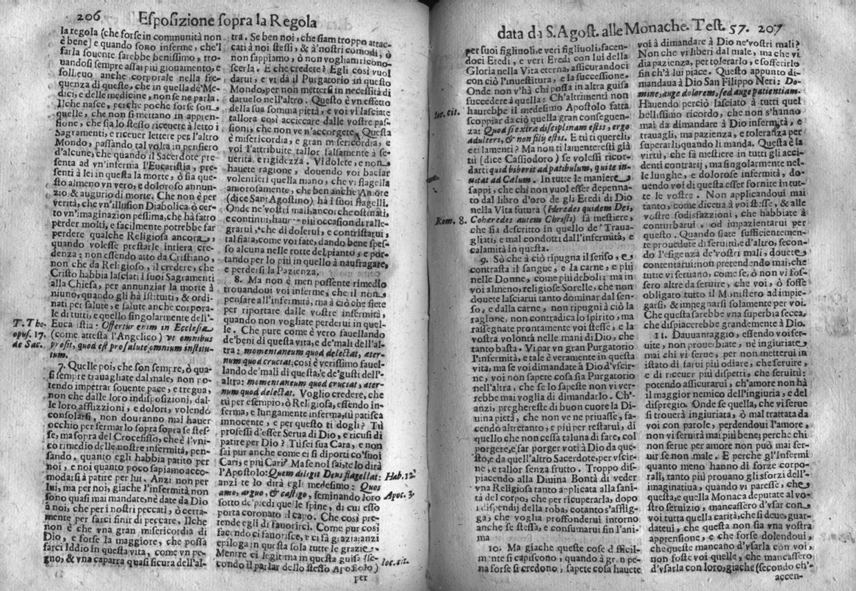 206 Esposizione sopra la Regola
la regola (che forse in communità non
è bene) e quando sono inferme, che'l
farla souente sarebbe benissimo, tro-
uandosi sempre assai più giouamento, e
solleuo anche corporale nella fre-
quenza di questo, che in quella de'Me-
dici, e delle medicine, non se ne parla.
Ilche nasce, perche poche sono
quelle, che non si mettano in appren-
sione, che sia lo stesso riceuere i letto i
Sagramenti, e riceuer lettere per l'altro
Mondo, passando tal volta in pensiero
d'alcune, che quando il Sacerdote pre-
senta ad vn'inferma l'Eucaristia, pre-
senti à lei in questa la morte, ò sia que-
sto almeno vn vero, e doloroso annun-
zio, & augurio di morte. Che non è per
verità, che vn'illusion Diabolica ò cer-
to vn'imaginazion pessima, che hà fatto
perder molti, e facilmente potrebbe far
perdere qualche Religiosa ancora,
quando volesse prestarle intiera cre-
denza; non essendo atto da Cristiano,
non che da Religioso, il credere, che
Cristo habbia lasciati i suoi Sagramenti
alla Chiesa, per annunziar la morte à
niuno, quando gli hà istituti, & ordi-
nati per salute, e salute anche corpora-
le di tutti, e quello singolarmente dell'
Eucaristia: Offertur enim in Ecclesia
(come attesta l'Angelico) vt omnibus
prosit, quod est pro salute omnium institu-
tum.
T. Tho.
opus. 17.
de Sac.
7. Quelle poi, che son sempre, ò qua-
si sempre trauagliate dal male, non po-
tendo impetrar souente pace, e tregua,
non che dalle loro indisposizioni, dal-
le loro afflizzioni, e dolori, volendo
consolarsi, non douranno mai hauer
occhio per fermar lo sopra sopra se stes-
se, ma sopra del Crocefisso, che è l'vni-
co rimedio delle nostre infermità, pen-
sando, quanto egli habbia patito per
noi, e noi quanto poco sapiamo acco-
modarsi à patire per lui. Anzi non per
lui, ma per noi, giache l'infermità non
sono quasi mai mandate, nè date da Dio
à noi, che per i nostri peccati, ò certa-
mente per farci finir di peccare. Ilche
non è che vna gran misericordia di
Dio, e forse la maggiore, che possa
farci Iddio in questa vita, come vn pe-
gno, & vna caparra quasi sicura dell'al-
tra. Se ben noi, che siam troppo attac-
cati à noi stessi, & à'nostri comodi, ò
non sappiamo, ò non vogliam ricono-
scerla. E che credete? Egli così vuol
darui, e vi dà il Purgatorio in questo
Mondo, per non mettersi in necessità di
daruelo nell'altro. Questo è vn effetto
della sua somma pietà, e voi vi lasciate
tallora così accecare dalle vostre pas-
sioni, che non ve n'accorgete. Questa
è misericordia, e gran misericordia, e
voi l'attribuite tallor falsamente à se-
uerità, e rigidezza. Vi dolete, e non
hauete ragione, douendo voi baciar
volentieri quella mano, che vi flagella
amorosamente, che ben anche l'Amore
(dice Sant'Agostino) hà i suoi flagelli.
8. Ma non è men possente rimedio
trouandoui voi inferme, che il non
pensare all'infermità, ma à ciò che siete
per riportare dalle vostre infermità
quando non vogliate perderui in quel-
le. Che pure come è vero fauellando
de'beni di questa vita, e de'mali dell'al-
tra: momentaneum quod delectat, æter-
num quod cruciat: così è verissimo fauel-
lando de'mali di questa, e de'gusti dell'
altra: momentaneum quod cruciat, æter-
num quod delectat. Voglio credere, che
tu per esempio, ò Religiosa, essendo in-
ferma, e lungamente inferma, tù patisca
innocente, e per questo ti dogli? Tu
professi d'esser Serua di Dio, e ricusi di
patire per Dio? Tu sei sua Cara, e non
sai pur anche come ei si diporti co'suoi
Cari, e più Cari? Ma se nol sai, te lo dirà
l'Apostolo: Quem diligit Deus, flagellat:
anzi te lo dirà egli medesimo: Quos
amo, arguo, & castigo, seminando loro
sotto de'piedi quelle spine, di cui esso
porta coronato il capo. Che così pre-
tende egli di fauorirci. Come pur così
facendo ci fauorisce, e ci fà grazia, anzi
epiloga in questa sola tutte le grazie.
Mentre ei legitima in questa guisa (se-
condo il parlar dello stesso Apostolo)
per
Hab. 12.
Apoc. 3.
loc. cit.
data da S. Agost. alle Monache. Test. 57. 207
per suoi figliuoli, e veri figliuoli, facen-
doci Eredi, e veri Eredi con lui della
Gloria nella Vita eterna, assicurandoci
con ciò l'inuestitura, e la successione.
Onde non v'hà chi possa in altra guisa
succedere à quella: Ch'altrimenti non
haurebbe il medesimo Apostolo fatta
scoprire da ciò quella gran conseguen-
za: Quod si extra disciplinam estis, ergo
adulteri, & non filij estis. E ti tu quereli,
e ti lamenti? Ma non ti lauenteresti già
tu (dice Cassiodoro) se volessi ricor-
darti: quid biberit ad patibulum, qui te in-
uitat ad Cælum. In tutte le maniere
sappi, che chi non vuol esser depenna-
to dal libro d'oro de gli Eredi di Dio
nella Vita futura (Hæredes quidem Dei,
Coheredes autem Christi) fà mestiere,
che sia descritto in quello de'Traua-
gliati, e mal condotti dall'infermità, e
calamità in questa.
loc. cit.
Rom. 8.
9. Sò che à ciò ripugna il senso, e
contrasta il sangue, e la carne, e più
nelle Donne, come più deboli: ma in
voi almeno, religiose Sorelle, che non
douete lasciarui tanto dominar dal sen-
so, e dalla carne, non ripugni à ciò la
ragione, non contradica lo spirito, ma
rassegnate prontamente voi stesse, e la
vostra volontà nelle mani di Dio, che
tanto basta. Vi par vn gran Purgatorio
l'infermità, e tale è veramente in questa
vita, ma se voi dimandate à Dio d'vscir-
ne, voi non sapete cosa sia Purgatorio
nell'altra, che se lo sapeste non vi ver-
rebbe mai voglia di dimandarlo. Ch'
anzi, preghereste di buon cuore la Di-
uina pietà, che non ve ne priuasse, fa-
cendo altretanto, e più per restarui, di
quello che non cessa taluna di fare, col
porgere, e far porger voti à Dio da que-
sto, e da quell'altro Sacerdote, per vscir-
ne, e tallor senza frutto. Troppo dis-
piacendo alla Diuina Bontà di veder
vna Religiosa tanto applicata alla sani-
tà del corpo, che per ricuperarla, dopo
i dispendij della roba, cotanto s'afflig-
ga, che voglia profondersi intorno
anche se stessa, e consumarsi sin l'ani-
ma
10. Ma giache queste cose difficil-
mente si capiscono, quando à gran pe-
na forse si credono, sapete cosa hauete
voi à dimandare à Dio ne'vostri mali?
Non che vi liberi dal male, ma che vi
dia pazienza, per tolerarlo, e soffrirlo
sin ch'à lui piace. Questo appunto di-
mandaua à Dio San Filippo Neri: Do-
mine, auge dolorem, sed auge patientiam.
Hauendo perciò lasciato à tutti quel
bellissimo ricordo, che non s'hanno
mai da dimandar à Dio infermità, e
trauagli, ma pazienza, e toleranza per
superarli, quando li manda. Questa è la
virtù, che fà mestiere in tutti gli acci-
denti contrarj, ma singolarmente nel-
le lunghe, e dolorose infermità, do-
uendo voi di questa esser fornite in tut-
te le vostre. Non applicandoui mai
tanto, come diceua à voi stesse, & alle
vostre sodisfazzioni, che habbiate à
conturbarui, od impazientarui per
questo. Quando siate sufficientemen-
te prouedute di seruirui, e d'altro, secon-
do l'esigenza de'vostri mali, douete
contentarui: non pretendendo mai, che
tutte vi seruano, come se, ò non vi fos-
sero altre da seruire, che voi, ò fosse
obligato tutto il Monistero ad impie-
garsi, & impegnarsi solamente per voi.
Che questa sarebbe vna superbia secca,
che dispiacerebbe grandemente à Dio.
11. Dauuantaggio, essendo voi ser-
uite, non prouerbiate, nè ingiuriate
mai chi vi serue, per non metterui in
istato di farui più odiare, che seruire,
e di riceuer più dispetti, che seruizi:
potendo assicurarui, ch'amore non hà
il maggior nemico dell'ingiuria, e del
dispregio. Onde se quella, che vi serue
si trouerà ingiuriata, ò mal trattata da
voi con parole, perdendoui l'amore,
non vi seruirà mai più bene; perche chi
non serue per amore non può mai ser-
uir se non male. E perche gl'Infermi
quanto meno hanno di forze corpo-
rali, tanto più prouano gli sforzi dell'
imaginatiua, quando vi paresse, che
questa, e quella Monaca deputate al vo-
stro seruizio, mancassero d'vsar con
voi tutta quella carità, che si dee: guar-
dateui, che questa non sia vna vostra
apprensione, e che forse dolendoui,
che queste mancano d'vsarla con voi,
non foste voi quelle, che mancassero
d'vsarla con loro, giache (secondo ch'
accen-